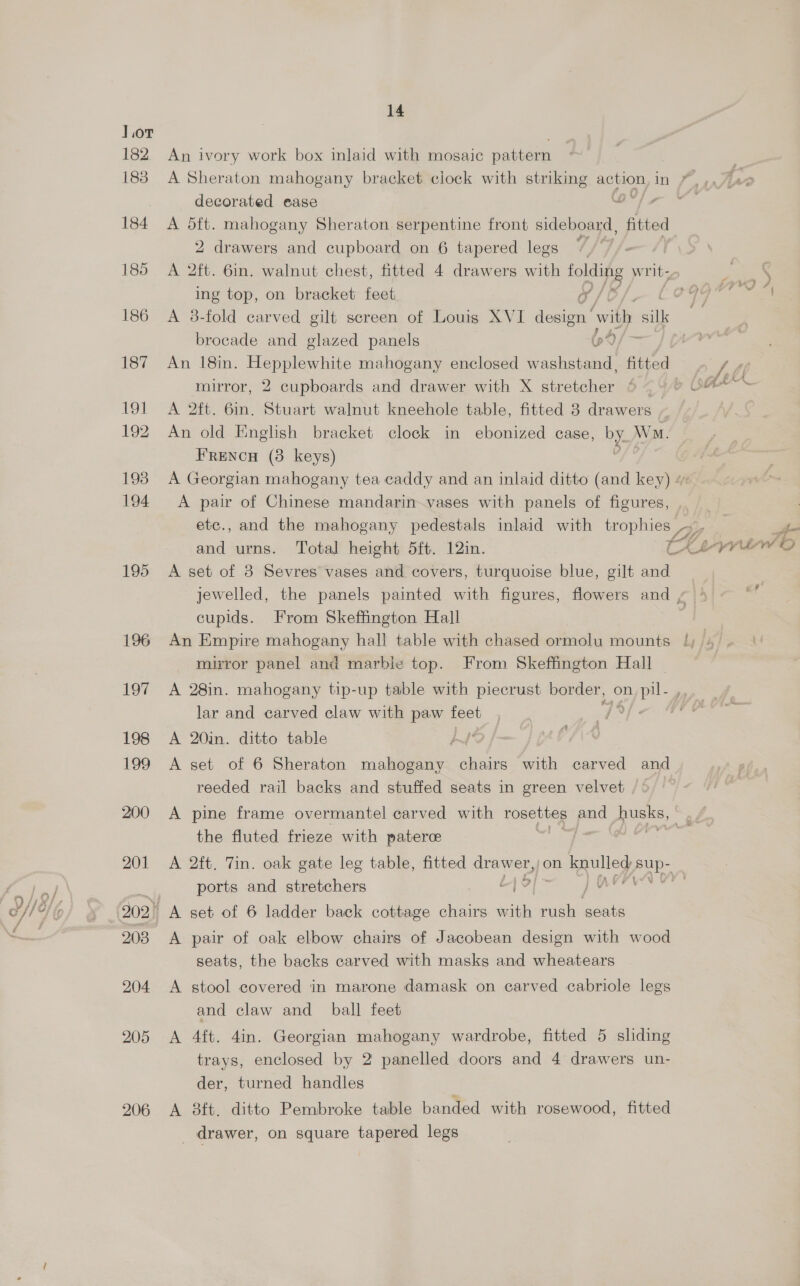 14
Lot
182 An ivory work box inlaid with mosaic pattern
183 A Sheraton mahogany bracket clock with striking action, in
decorated case
184 A 5ft. mahogany Sheraton serpentine front sideboard, fitted
2 drawers and cupboard on 6 tapered legs
185 A 2ft. 6in. walnut chest, fitted 4 drawers with folding writ-
ing top, on bracket feet
186 A 3-fold carved gilt screen of Louis XVI design with silk
brocade and glazed panels
187 An 18in. Hepplewhite mahogany enclosed washstand, fitted
mirror, 2 cupboards and drawer with X stretcher
191 A 2ft. 6in. Stuart walnut kneehole table, fitted 3 drawers
192 An old English bracket clock in ebonized case, by Wm.
French (3 keys)
193 A Georgian mahogany tea caddy and an inlaid ditto (and key)
194 A pair of Chinese mandarin vases with panels of figures,
etc., and the mahogany pedestals inlaid with trophies
and urns. Total height 5ft. 12in.
195 A set of 3 Sevres vases and covers, turquoise blue, gilt and
jewelled, the panels painted with figures, flowers and
cupids. From Skeffington Hall
196 An Empire mahogany hall table with chased ormolu mounts
mirror panel and marble top. From Skeffington Hall
197 A 28in. mahogany tip-up table with piecrust border, on pil-
lar and carved claw with paw feet
198 A 20in. ditto table
199 A set of 6 Sheraton mahogany chairs with carved and
reeded rail backs and stuffed seats in green velvet
200 A pine frame overmantel carved with rosettes and husks,
the fluted frieze with pateræ
201 A 2ft. 7in. oak gate leg table, fitted drawer, on knulled sup-
ports and stretchers
202 A set of 6 ladder back cottage chairs with rush seats
203 A pair of oak elbow chairs of Jacobean design with wood
seats, the backs carved with masks and wheatears
204 A stool covered in marone damask on carved cabriole legs
and claw and ball feet
205 A 4ft. 4in. Georgian mahogany wardrobe, fitted 5 sliding
trays, enclosed by 2 panelled doors and 4 drawers un-
der, turned handles
206 A 3ft. ditto Pembroke table banded with rosewood, fitted
drawer, on square tapered legs